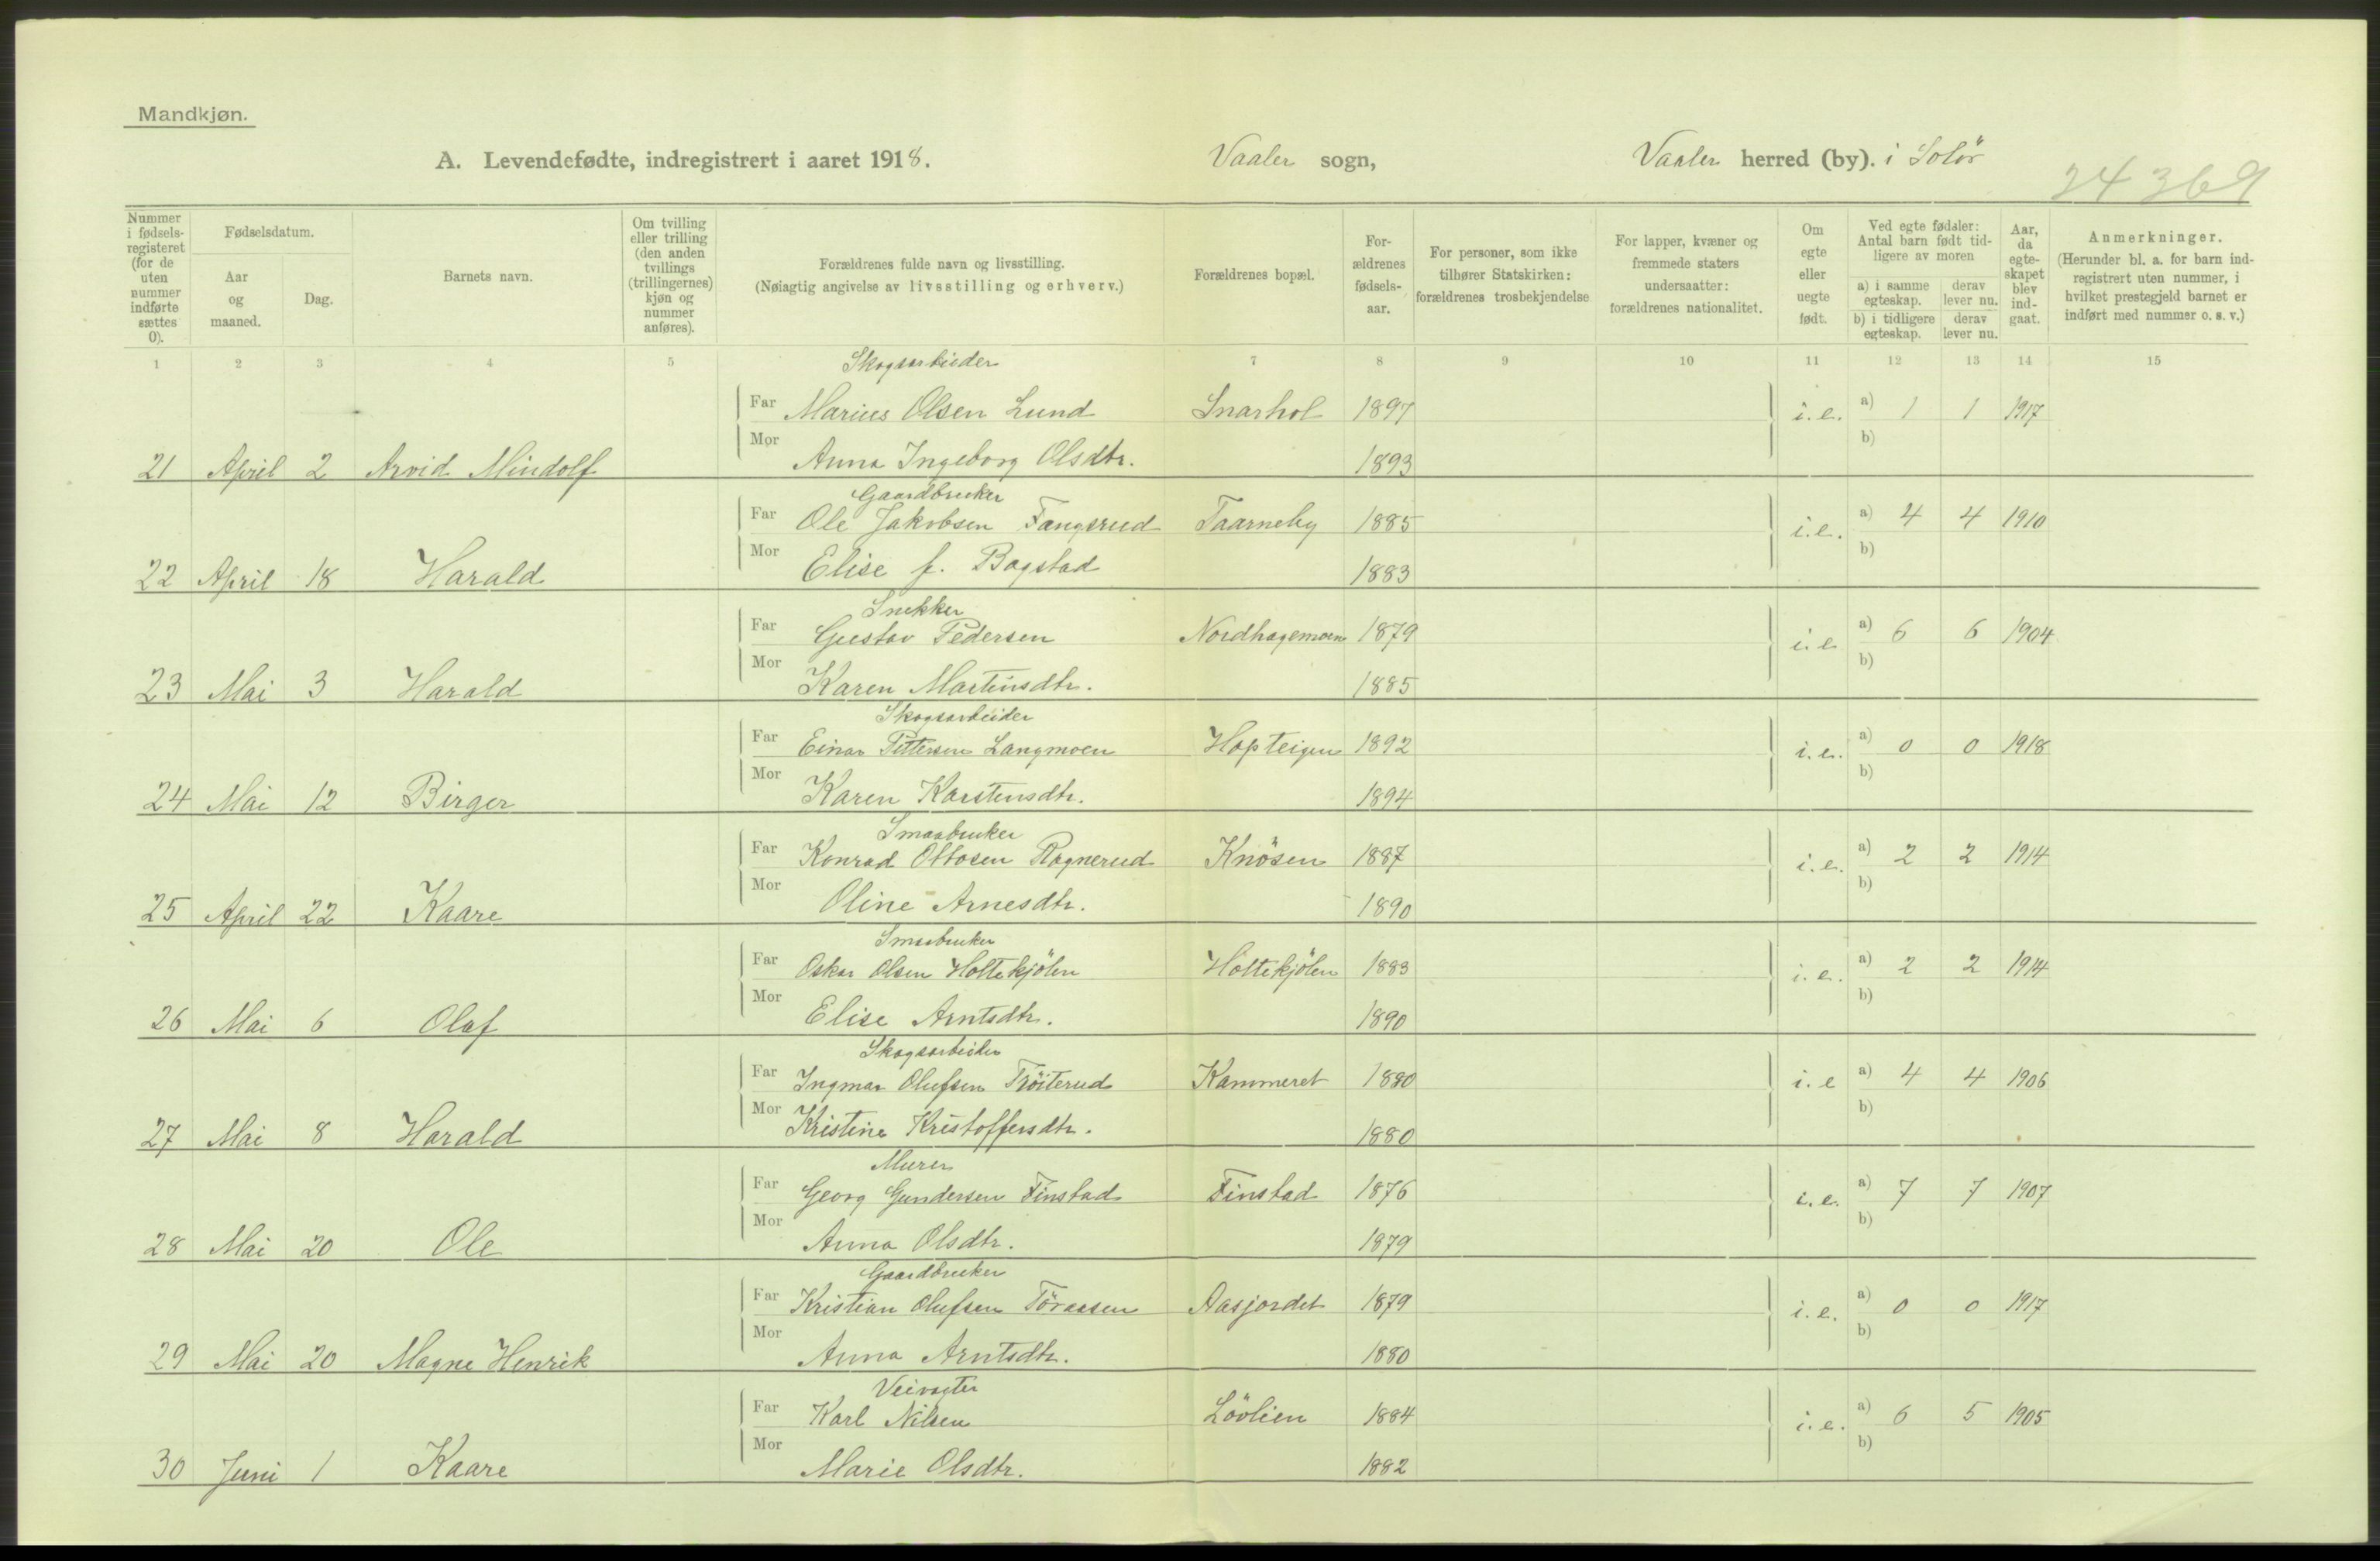 Mandkjøn.
A. Levendefødte, indregistrert i aaret 1918. Vaaler sogn, Vaaler herred (by). i Solör
24 369
Nummer i fødselsregisteret (for de uten nummer indførte sættes 0).
Fødselsdatum.
Aar og maaned.
Dag.
Barnets navn.
Om tvilling eller trilling (den anden tvillings (trillingernes) kjøn og nummer anføres).
Forældrenes fulde navn og livsstilling.
(Nøiagtig angivelse av livsstilling og erhverv.)
Forældrenes bopæl.
Forældrenes fødselsaar.
For personer, som ikke tilhører Statskirken: forældrenes trosbekjendelse
For lapper, kvæner og fremmede staters undersaatter: forældrenes nationalitet.
Om egte eller uegte født.
Ved egte fødsler: Antal barn født tidligere av moren
a) i samme egteskap.
derav lever nu.
b) i tidligere egteskap.
derav lever nu.
Aar, da egteskapet blev indgaat.
Anmerkninger.
(Herunder bl. a. for barn indregistrert uten nummer, i hvilket prestegjeld barnet er indført med nummer o. s. v.)
1 2 3 4 5 7 8 9 10 11 12 13 14 15
Skogsarbeider
Far Marius Olsen Lund Snarhol 1897 i.e. a) 1 1 1917
b)
21 April 2 Arvid Mindolf Mor Anna Ingeborg Olsdtr. 1893
Gaardbruker
Far Ole Jakobsen Fangsrud Taarneby 1885 i.e. a) 4 4 1910
b)
22 April 18 Harald Mor Elise f. Bagstad 1883
Snekker
Far Gustav Pedersen Nordhagemoen 1879 i.e a) 6 6 1904
b)
23 Mai 3 Harald Mor Karen Martinsdtr. 1885
Skogsarbeider
Far Einar Pettersen Langmoen Hopteigen 1892 i.e. a) 0 0 1918
b)
24 Mai 12 Birger Mor Karen Karstensdtr. 1894
Smaabruker
Far Konrad Ottosen Ragnerud Knösen 1887 i.e. a) 2 2 1914
b)
25 April 22 Kaare Mor Oline Arnesdtr. 1890
Smaabruker
Far Oskar Olsen Holtekjölen Holtekjölen 1883 i.e. a) 2 2 1914
b)
26 Mai 6 Olaf Mor Elise Arntsdtr. 1890
Skogsarbeider
Far Ingmar Olufsen Tröiterud Kammeret 1880 i.e a) 4 4 1906
b)
27 Mai 8 Harald Mor Kristine Kristoffersdtr. 1880
Murer
Far Georg Gundersen Finstad Finstad 1876 i.e. a) 7 7 1907
b)
28 Mai 20 Ole Mor Anna Olsdtr. 1879
Gaardbruker
Far Kristian Olufsen Töraasen Aasjordet 1879 i.e. a) 0 0 1917
b)
29 Mai 20 Magne Henrik Mor Anna Arntsdtr. 1880
Veivogter
Far Karl Nilsen Lövlien 1884 i.e. a) 6 5 1905
b)
30 Juni 1 Kaare Mor Marie Olsdtr. 1882